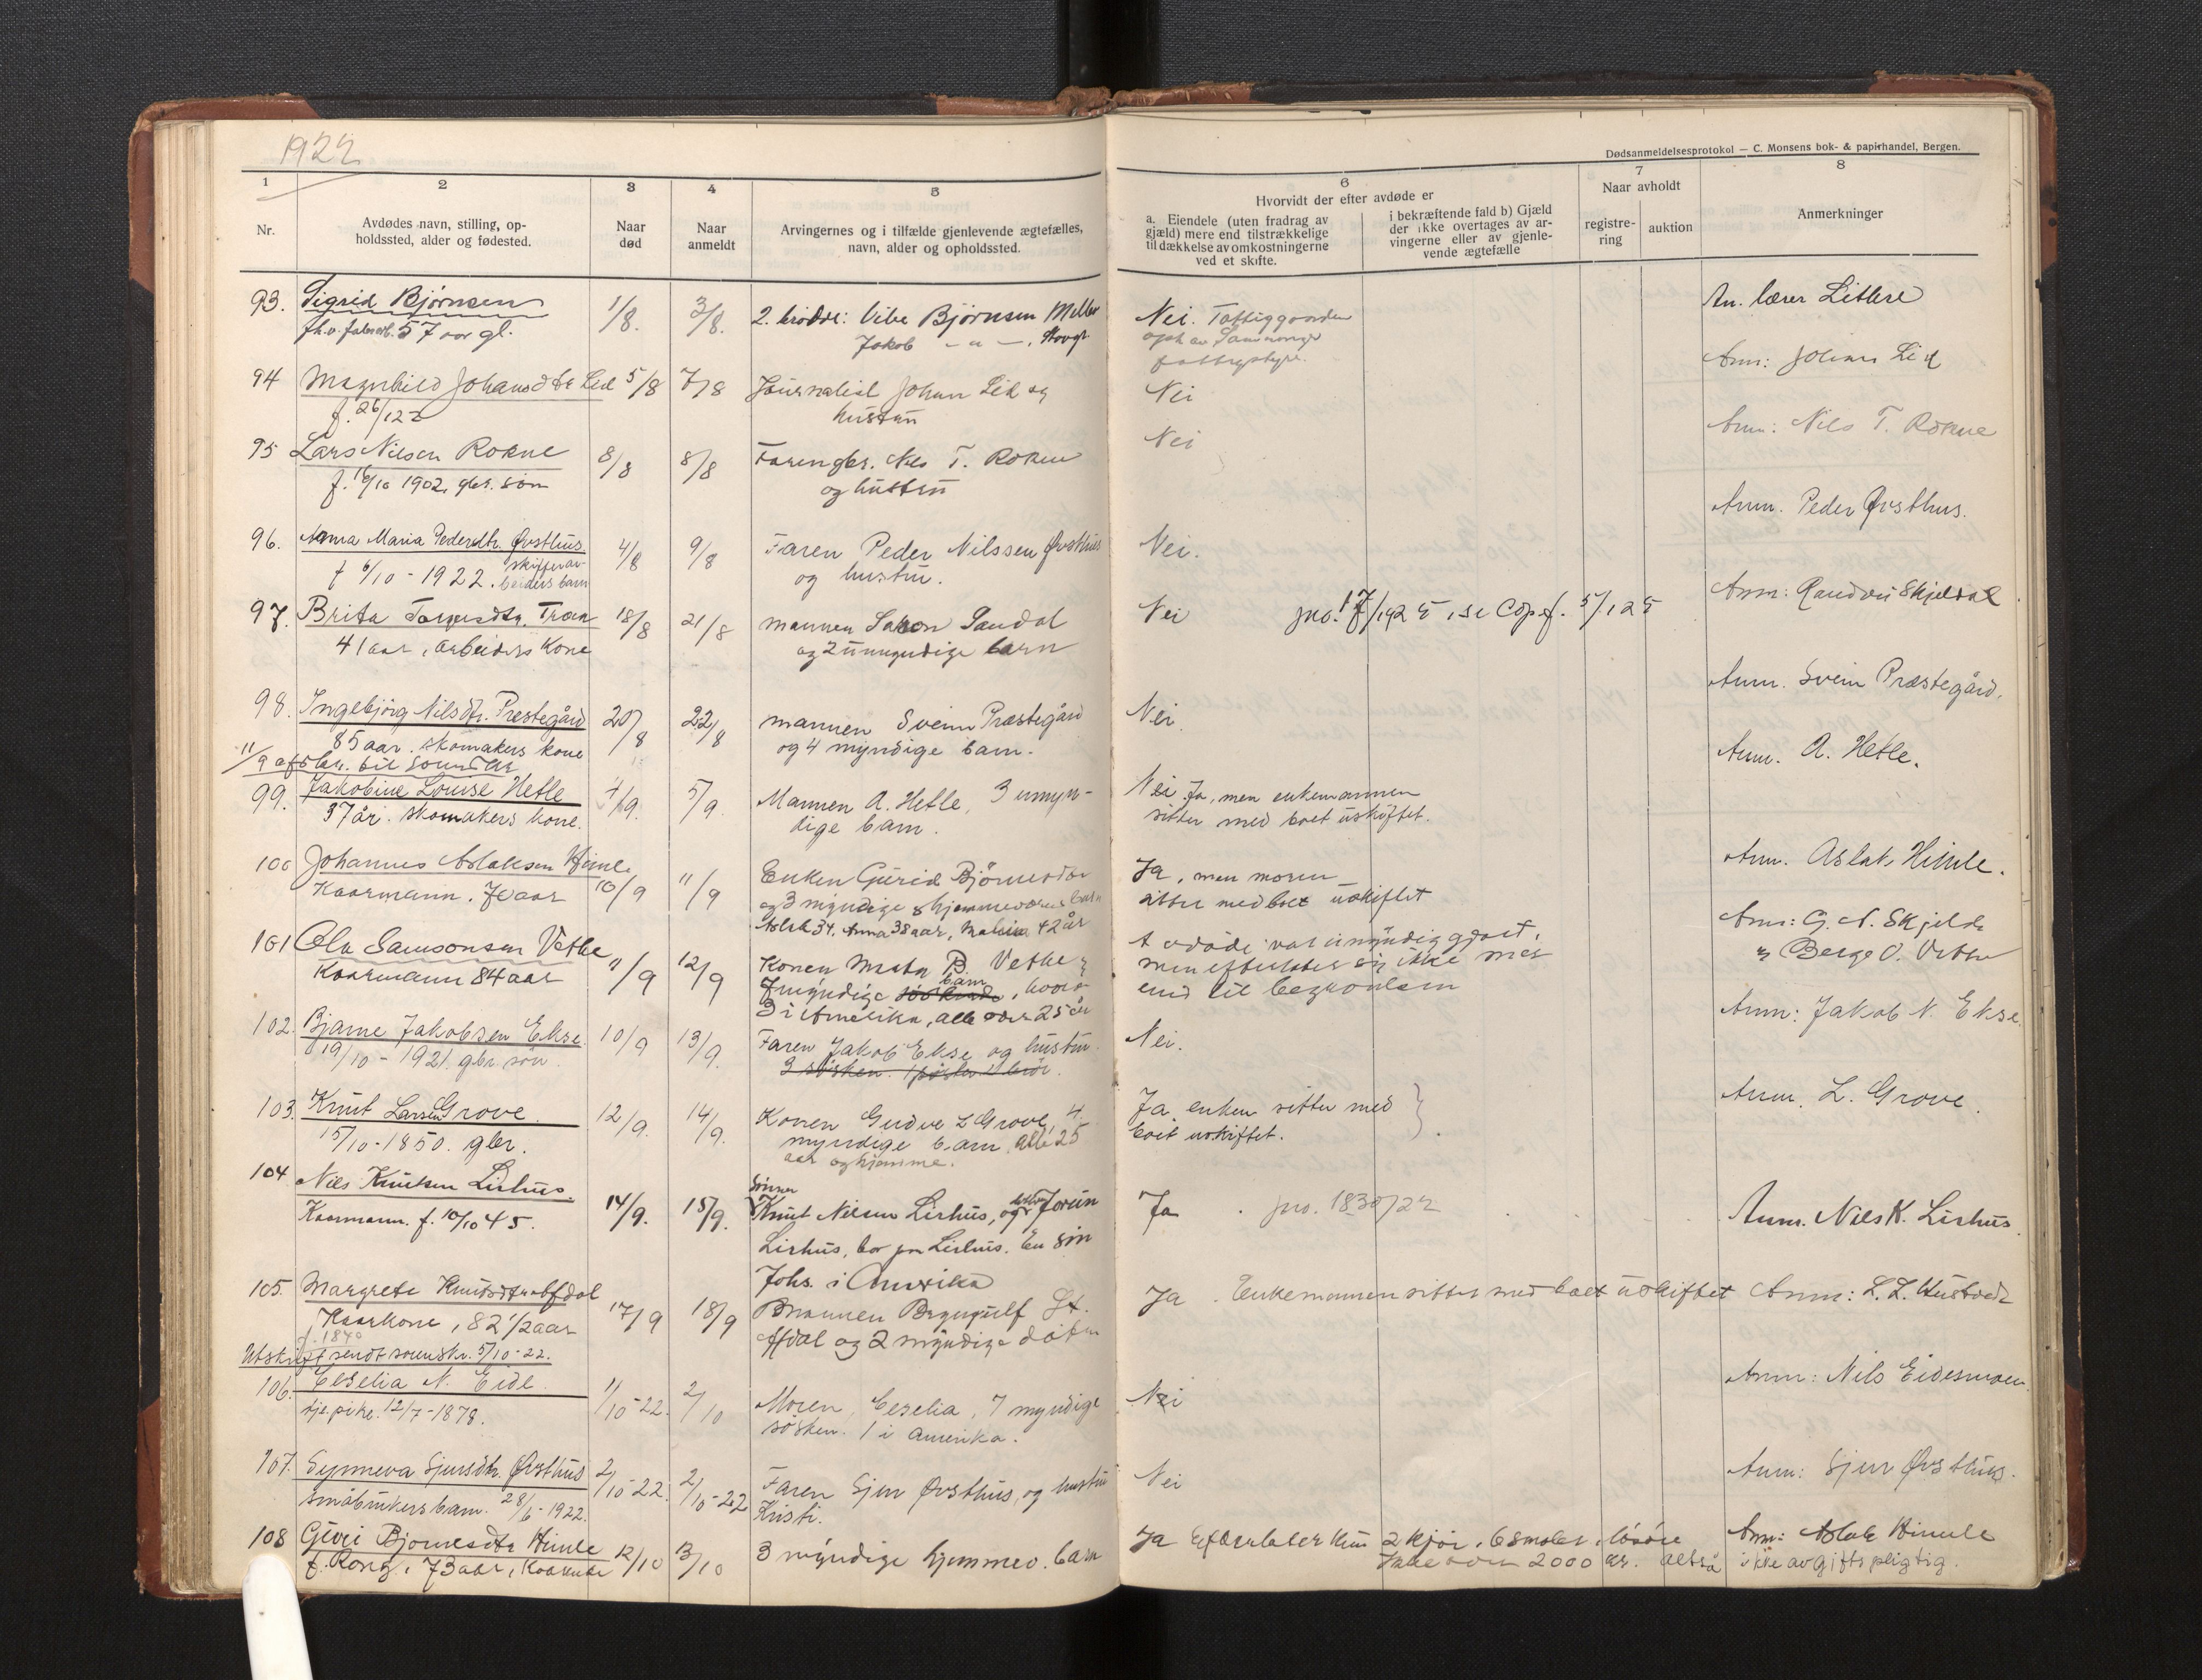 1922
Dødsanmeldelsesprotokol — C. Monsens bok- & papirhandel, Bergen.
1 2 3 4 5 6 7 8
Nr.
Avdødes navn, stilling, op-
holdssted, alder og fødested.
Naar
død
Naar
anmeldt
Arvingernes og i tilfælde gjenlevende ægtefælles,
navn, alder og opholdssted.
Hvorvidt der efter avdøde er
a. Eiendele (uten fradrag av
gjæld) mere end tilstrækkelige
til dækkelse av omkostningerne
ved et skifte.
i bekræftende fald b) Gjæld
der ikke overtages av ar-
vingerne eller av gjenle-
vende ægtefælle
Naar avholdt
registre-
ring
auktion
Anmerkninger
93. Sigrid Bjørnsen 1/8. 3/8. 2. brødre: Vibe Bjørnsen Nei. Fattiggaarden An. lærer
57 aar gl. Jakob — " —
fattigstyre.
94 Magnhild Johansdtr Lid 5/8 7/8 Journalist Johan Lid og Nei Anm: Johan Lid
f. 26/122 hustru
95 Lars Nilsen Rokne 8/8 8/8 Faren gbr. Nils T. Rokne Nei Anm: Nils T. Rokne
f. 16/10 1902, gbr. søn og hustru
96. Anna Maria Pedersdtr. Øvsthus. 4/8 9/8 Faren Peder Nilssen Øvsthus Nei. Anm. Peder Øvsthus.
skiferar-
f 6/10 - 1922. beiders barn og hustru.
97. Brita Torgersdtr. Træn 18/8 21/8 mannen Sakon Sandal Nei pro. 17/1925, se Cop.f. 5/125 Anm: Randvei Skjeldal
41 aar, arbeiders kone og 2 umyndige barn
98. Ingebjørg Nilsdtr. Prestegård 20/8 22/8 mannen Svein Præstegård Nei. Anm. Svein Præstegård.
85 aar. skomakers kone og 4 myndige barn.
11/9 afskr. til sorenskr
99. Jakobine Louise Hetle 4/9. 5/9. Mannen A. Hetle, 3 umyn- Nei Ja, men enkemannen Anm. A. Hetle.
37 år. skomakers kone. dige barn. sitter med boet uskiftet.
100 Johannes Aslaksen Himle 10/9 11/9 Enken Gurid Bjørnesdtr Ja, men moren Anm. Aslak Himle.
Kaarmann. 70 aar og 3 myndige hjemmeværende barn sitter med boet uskiftet
Aslak 34. Anna 38 aar, 42 år
101 Ola Samsonsen Vethe 11/9 12/9 Konen Marta B. Vethe Avdøde var umyndiggjort, Anm: G. N. Skjelde
Kaarmann 84 aar 7 myndige barn, hvorav men efterlater sig ikke mer og Berge O. Vethe
3 i Amerika, alle over 25 år end til begravelsen
102. Bjarne Jakobsen Ekse. 10/9 13/9. Faren Jakob Ekse og hustru. Nei. Anm: Jakob N. Ekse.
19/10 - 1921. gbr. søn. 3 søsken. 1 søster
103. Knut Larsen Grove. 12/9. 14/9. Konen Gudve L Grove, 4 Ja enken sitter med Anm. L. Grove.
15/10-1850. gbr. myndige barn, alle 25 boet uskiftet.
aar og hjemme.
104. Nils Knutsen Lirhus. 14/9. 15/9. Sønnen
Knut Nilsen Lirhus, og Jorun Ja pro. 1830/22 Anm. Nils K. Lirhus.
Kaarmann. f. 10/10 45. Lirhus, bor på Lirhus. En søn
Johs. i Amerika
105. Margrete Knutsdtr Afdal 17/9 18/9 mannen Brynjulf Afdal og 2 myndige døtre Ja. Enkemannen sitter med boet uskiftet Anm: L. L. Hustvedt
Kaarkone, 82 1/2 aar
f. 1840
Utskrift sendt sorenskr. 5/10-22.
106. Ceselia N. Eide. 1/10-22. 2/10 Moren, Ceselia, 7 myndige Nei Anm: Nils Eidesmoen.
tje.pike. 12/7-1878. søsken. 1 i Amerika.
107. Synneva Sjursdtr. Øvsthus 2/10-22. 2/10-22 Faren Sjur Øvsthus, og hustru Nei Anm: Sjur Øvsthus.
småbrukers barn. 28/6-1922. Kristi.
108 Guri Bjørnesdtr Himle 12/10 13/10 3 myndige hjemmev. barn Ja Efterlater kun 2 kjør, 6 smaler, løsøre Anm: Aslak Himle
f. Rong, 73 aar, Kaarenke ikke over 2000 kr. altså ikke avgiftspligtig.